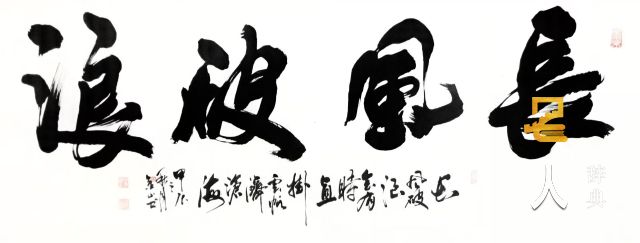 長風破浪
長風破浪會有時直掛雲帆濟滄海
甲辰
人
辞典